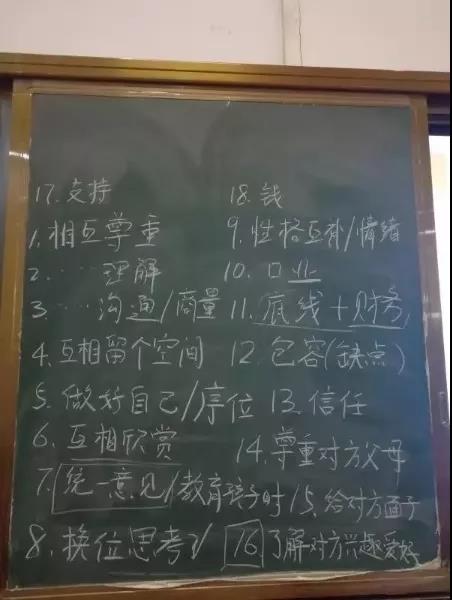 17.支持
18.钱
1.相互尊重
9.性格互补/情绪
2.……理解
10.口业
3……沟通/商量
11.底线+财务
4.互相留个空间
12.包容(缺点)
5.做好自己/序位
13.信任
6.互相欣赏
14.尊重对放母
7.统一意见/教育孩子时
15.给对方面子
8.换位思考
16.了解对方兴趣爱好